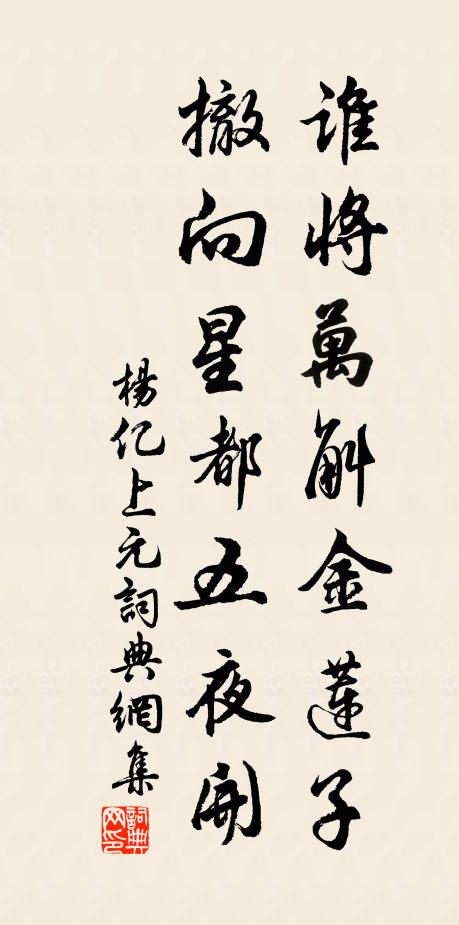 誰將萬斛金蓮子
撤向星都五夜開
楊億上元詞典網集
詞典網印